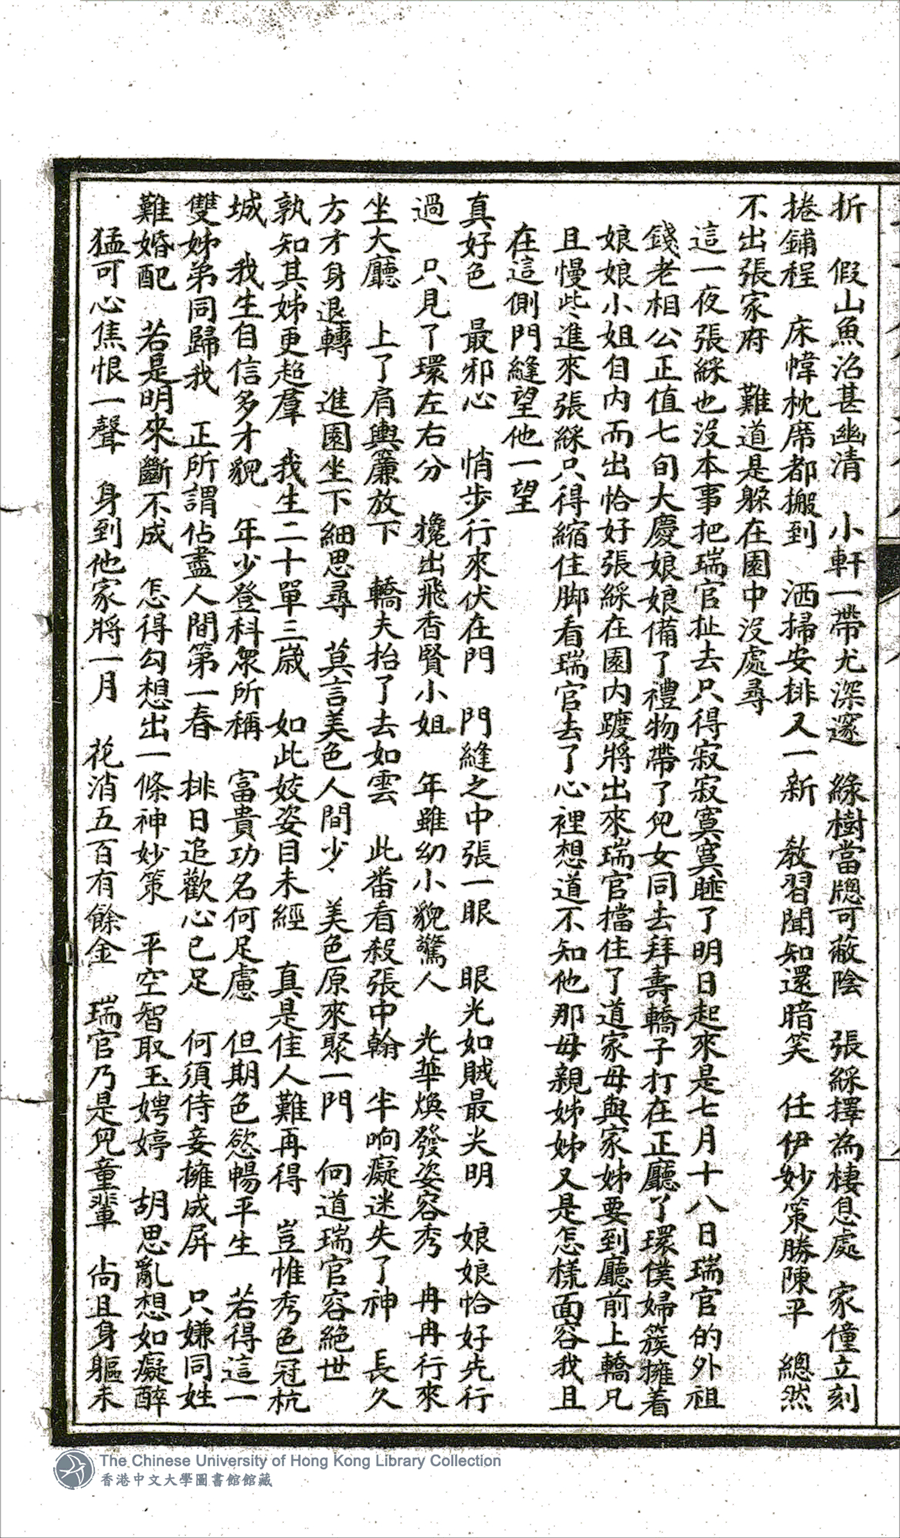 折　假山魚沼甚幽清　小軒一帶尤深邃　緣樹當牕可蔽陰　張綵擇為棲息處　家僮立刻
捲鋪程　床幃枕席都搬到　洒掃安排又一新　教習聞知還暗笑　任伊妙策勝陳平　總然
不出張家府　難道是躲在園中沒處尋
這一夜張綵也沒本事把瑞官扯去只得寂寂寞寞睡了明日起來是七月十八日瑞官的外祖
錢老相公正值七旬大慶娘娘備了禮物帶了兒女同去拜壽轎子打在正廳了環僕婦簇擁着
娘娘小姐自內而出恰好張綵在園內踱將出來瑞官擋住了道家母與家姊要到廳前上轎凡
且慢些進來張綵只得縮住脚看瑞官去了心裡想道不知他那母親姊姊又是怎樣面容我且
在這側門縫望他一望
真好色　最邪心　悄步行來伏在門　門縫之中張一眼　眼光如賊最尖明　娘娘恰好先行
過　只見了環左右分　攙出飛香賢小姐　年雖幼小貌驚人　光華煥發姿容秀　冉冉行來
坐大廳　上了肩輿簾放下　轎夫抬了去如雲　此番看殺張中翰　半晌癡迷失了神　長久
方才身退轉　進園坐下細思尋　莫言美色人間少　美色原來聚一門　向道瑞官容絕世
孰知其姊更超羣　我生二十單三歲　如此姣姿目未經　真是佳人難再得　豈惟秀色冠杭
城　我生自信多才貌　年少登科眾所稱　富貴功名何足慮　但期色慾暢平生　若得這一
雙姊弟同歸我　正所謂佔盡人間第一春　排日追歡心已足　何須侍妾擁成屏　只嫌同姓
難婚配　若是明來斷不成　怎得勾想出一條神妙策　平空智取玉娉婷　胡思亂想如癡醉
猛可心焦恨一聲　身到他家將一月　花消五百有餘金　瑞官乃是兒童輩　尚且身軀未
The Chinese University of Hong Kong Library Collection
香港中文大學圖書館館藏